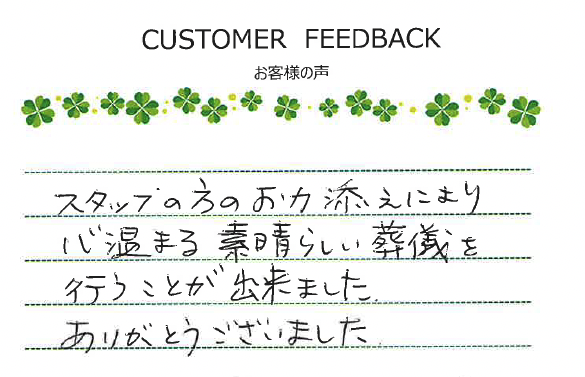 CUSTOMER FEEDBACK
お客様の声
スタップの方のお力添えにより
心温まる素晴らしい葬儀を
行うことが出来ました。
ありがとうございました。